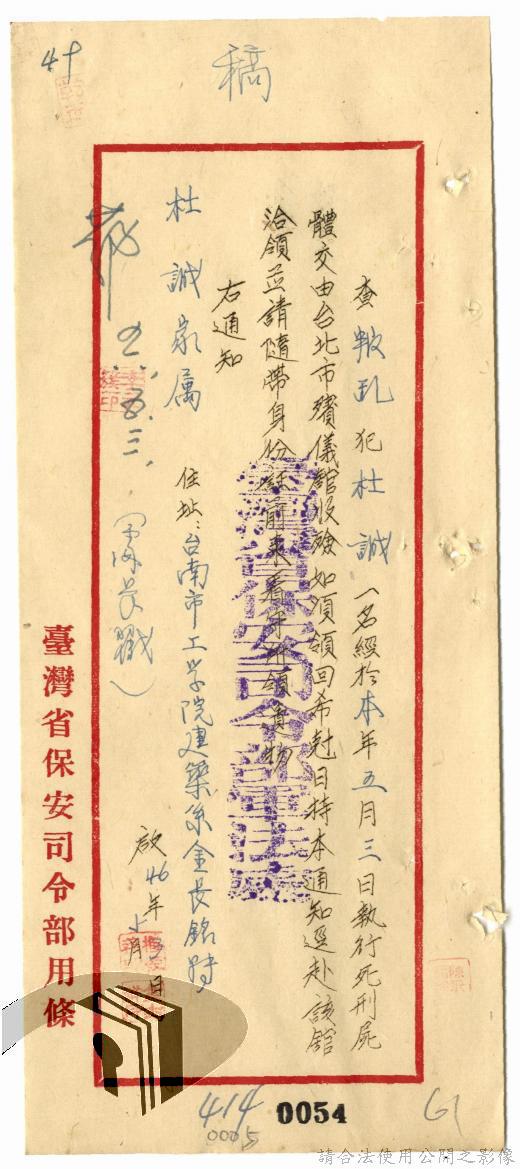 稿
查叛乱犯杜誠一名經於本年五月三日執行死刑屍
體交由台北市殯儀館收殮如須領回希尅日持本通知逕赴該館
洽領並請隨帶身份証前來看守所領遺物
右通知
杜誠家属
住址:台南市工学院建築系金長銘轉
啟46年5月3日
五.三.
臺灣省保安司令部軍法處
臺灣省保安司令部用條
414
0005
0054
61
請合法使用公開之影像